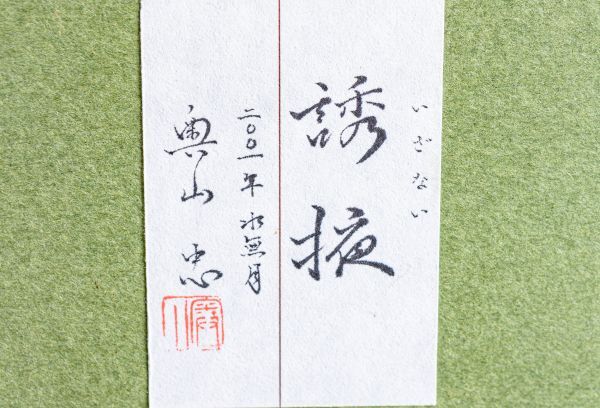 いざない
誘掖
二〇〇一年水無月
奥山忠